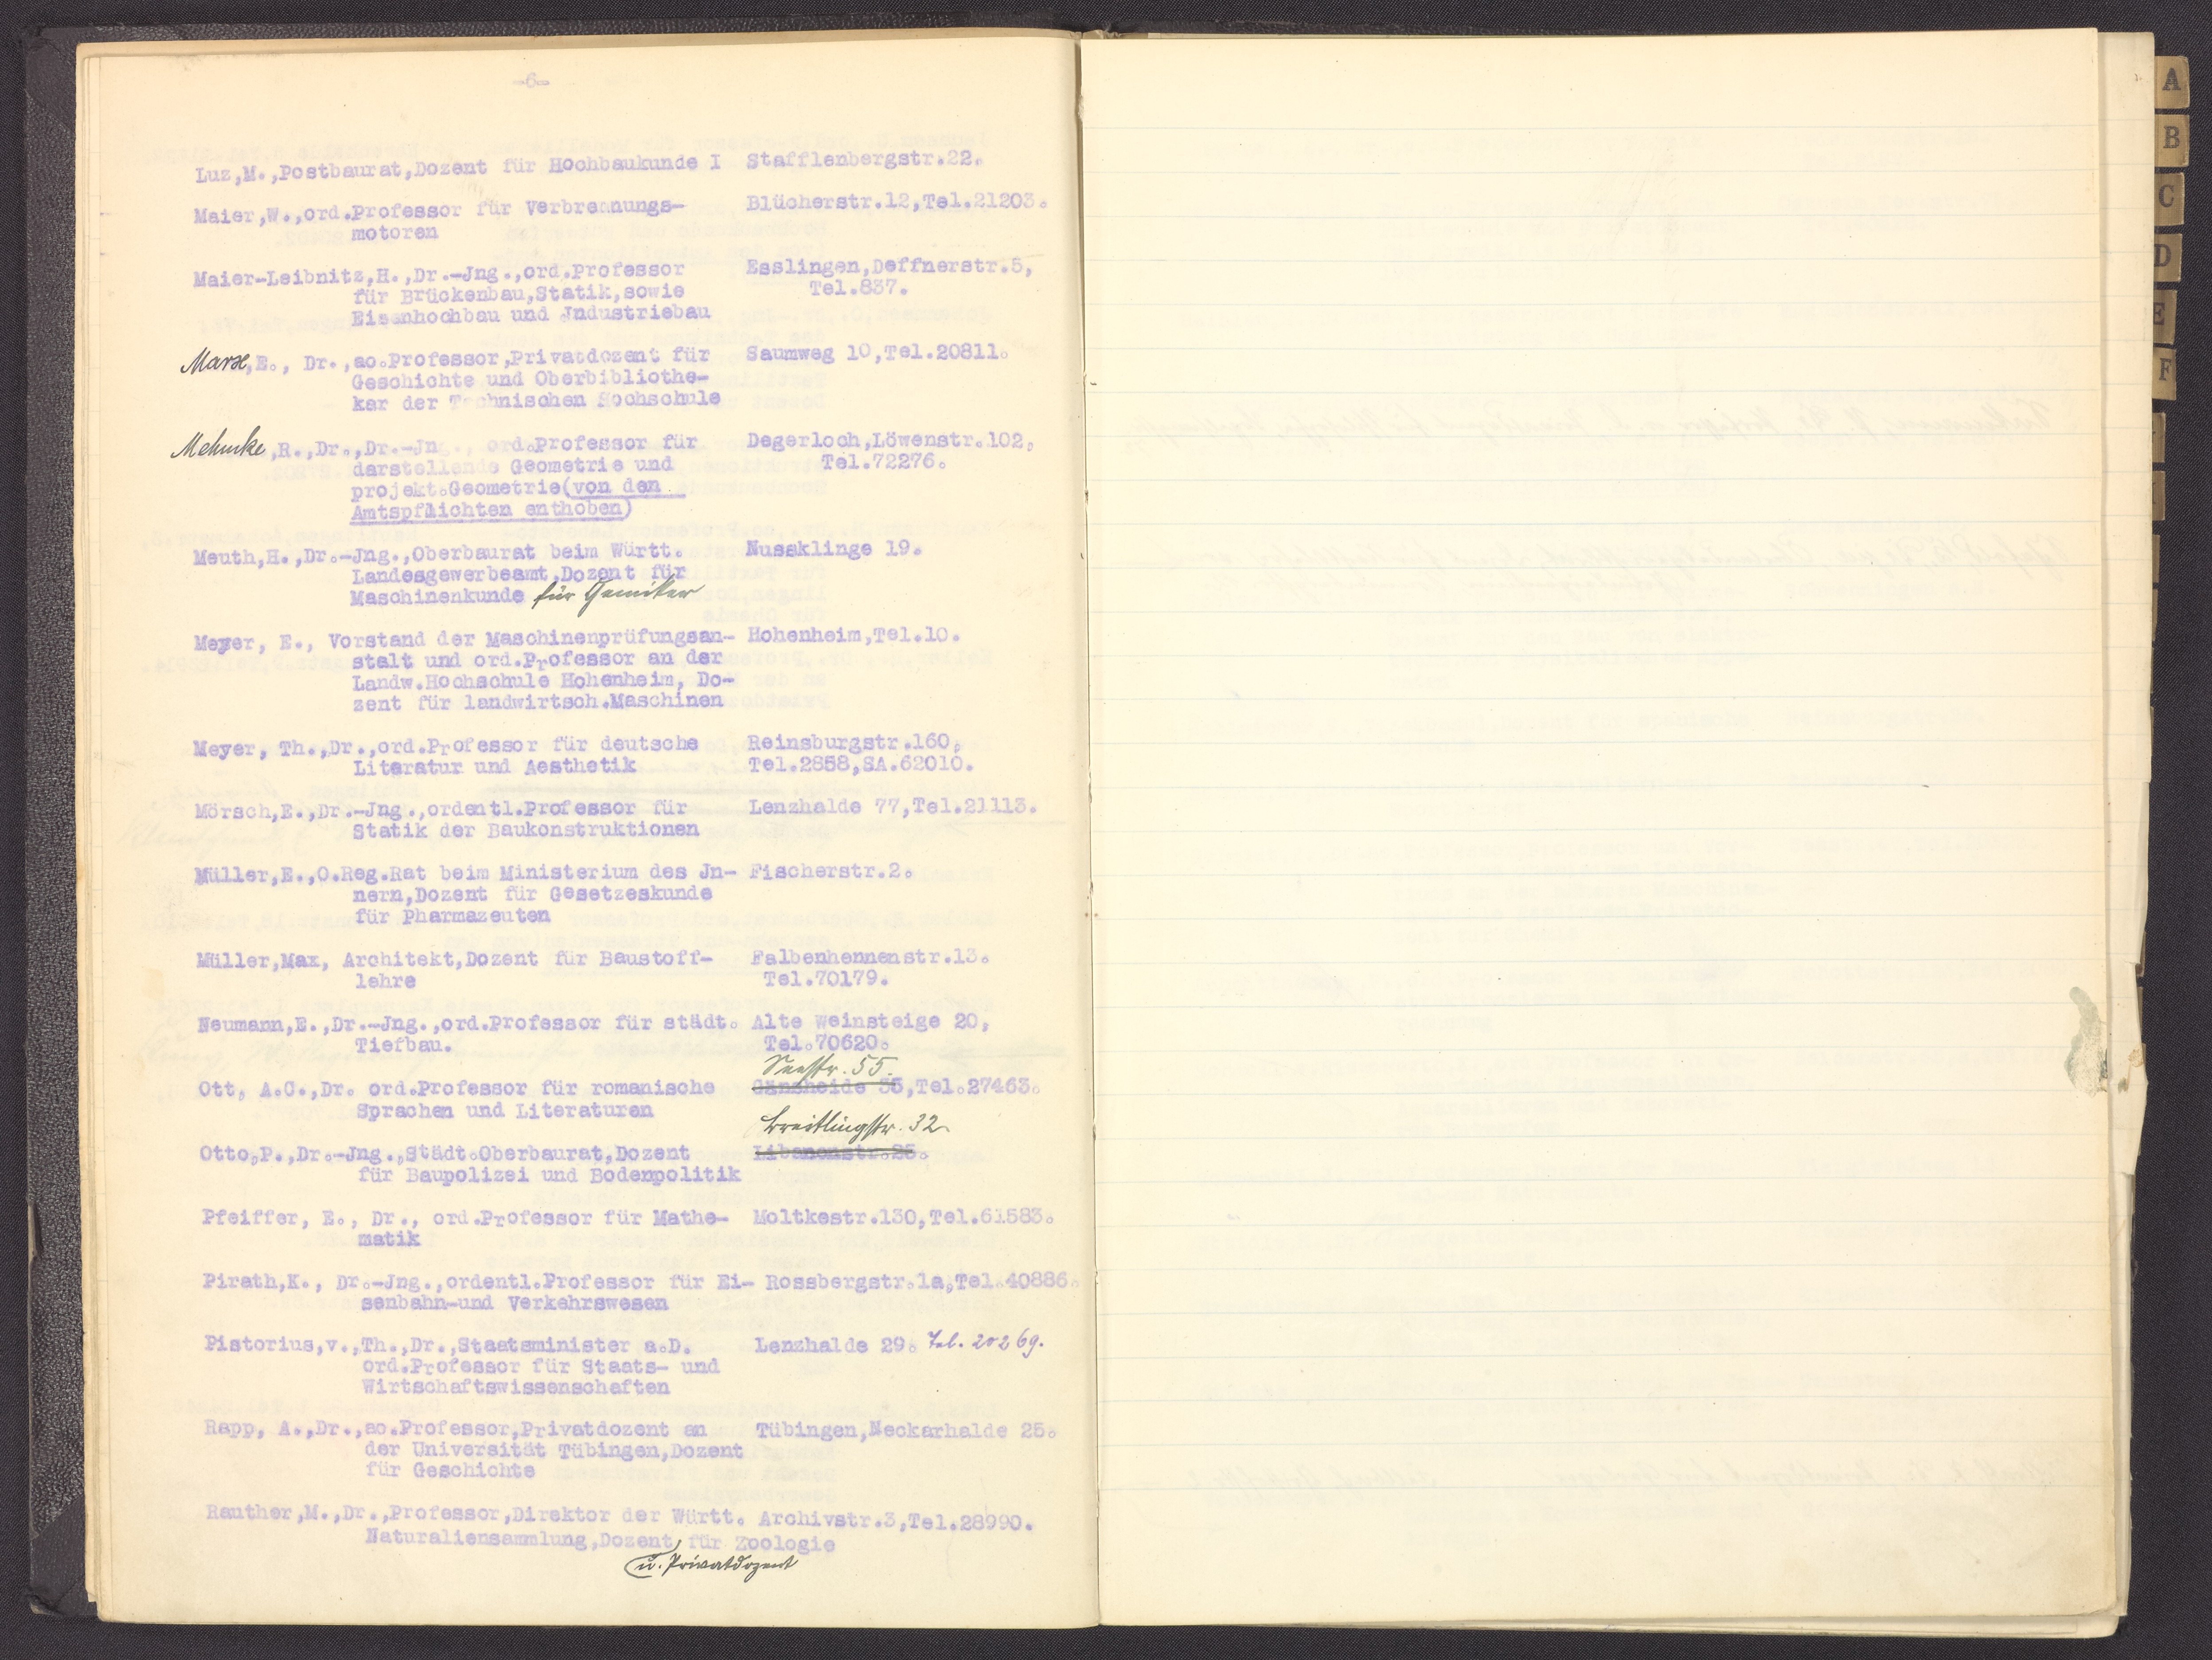 -6-
Luz,M.,Postbaurat,Dozent für Hochbaukunde I Stafflenbergstr.22.
Maier,W.,ord.Professor für Verbrennungs- Blücherstr.12,Tel.21203.
motoren
Maier-Leibnitz,H.,Dr.-Jng.,ord.Professor Esslingen,Deffnerstr.5,
für Brückenbau,Statik,sowie Tel.837.
Eisenhochbau und Jndustriebau
Marx,E., Dr.,ao.Professor,Privatdozent für Saumweg 10,Tel.20811.
Geschichte und Oberbibliothe-
kar der Technischen Hochschule
Mehmke,R.,Dr.,Dr.-Jng., ord.Professor für Degerloch,Löwenstr.102,
darstellende Geometrie und Tel.72276.
projekt.Geometrie(von den
Amtspflichten enthoben)
Meuth,H.,Dr.-Jng.,Oberbaurat beim Württ. Nussklinge 19.
Landesgewerbeamt,Dozent für
Maschinenkunde für Chemiker
Meyer, E., Vorstand der Maschinenprüfungsan- Hohenheim,Tel.10.
stalt und ord.Professor an der
Landw.Hochschule Hohenheim, Do-
zent für landwirtsch.Maschinen
Meyer, Th.,Dr.,ord.Professor für deutsche Reinsburgstr.160,
Literatur und Aesthetik Tel.2858,SA.62010.
Mörsch,E.,Dr.-Jng.,ordentl.Professor für Lenzhalde 77,Tel.21113.
Statik der Baukonstruktionen
Müller,E.,O.Reg.Rat beim Ministerium des Jn- Fischerstr.2.
nern,Dozent für Gesetzeskunde
für Pharmazeuten
Müller,Max, Architekt,Dozent für Baustoff- Falbenhennenstr.13.
lehre Tel.70179.
Neumann,E.,Dr.-Jng.,ord.Professor für städt. Alte Weinsteige 20,
Tiefbau. Tel.70620.
Seestr. 55.
Ott, A.C.,Dr. ord.Professor für romanische Gänsheide 35,Tel.27463.
Sprachen und Literaturen
Breitlingstr. 32
Otto,P.,Dr.-Jng.,Städt.Oberbaurat,Dozent Libanonstr.25.
für Baupolizei und Bodenpolitik
Pfeiffer, E., Dr., ord.Professor für Mathe- Moltkestr.130,Tel.61583.
matik
Pirath,K., Dr.-Jng.,ordentl.Professor für Ei- Rossbergstr.1a,Tel.40886.
senbahn-und Verkehrswesen
Pistorius,v.,Th.,Dr.,Staatsminister a.D. Lenzhalde 29. Tel. 20269.
ord.Professor für Staats- und
Wirtschaftswissenschaften
Rapp, A.,Dr.,ao.Professor,Privatdozent an Tübingen,Neckarhalde 25.
der Universität Tübingen,Dozent
für Geschichte
Rauther,M.,Dr.,Professor,Direktor der Württ. Archivstr.3,Tel.28990.
Naturaliensammlung,Dozent für Zoologie
u. Privatdozent
A
B
C
D
E
F